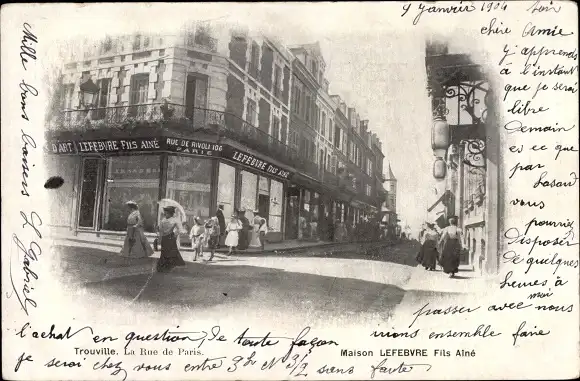 9 Janvier 1904 soir
chère Amie
j'apprends
à l'instant
que je serai
libre
Demain
es ce que
par
hasard
vous
pourriez
Disposer
de quelques
heures à
passer avec moi
nous
irions ensemble faire
l'achat en question, de toute façon
je serai chez vous entre 3h et 3½ sans faute
Mille bons baisers
L Gabriel
D'ART LEFEBVRE FILS AINÉ
RUE DE RIVOLI 106
PARIS
LEFEBVRE FILS AINÉ
Trouville. La Rue de Paris.
Maison LEFEBVRE Fils Aîné